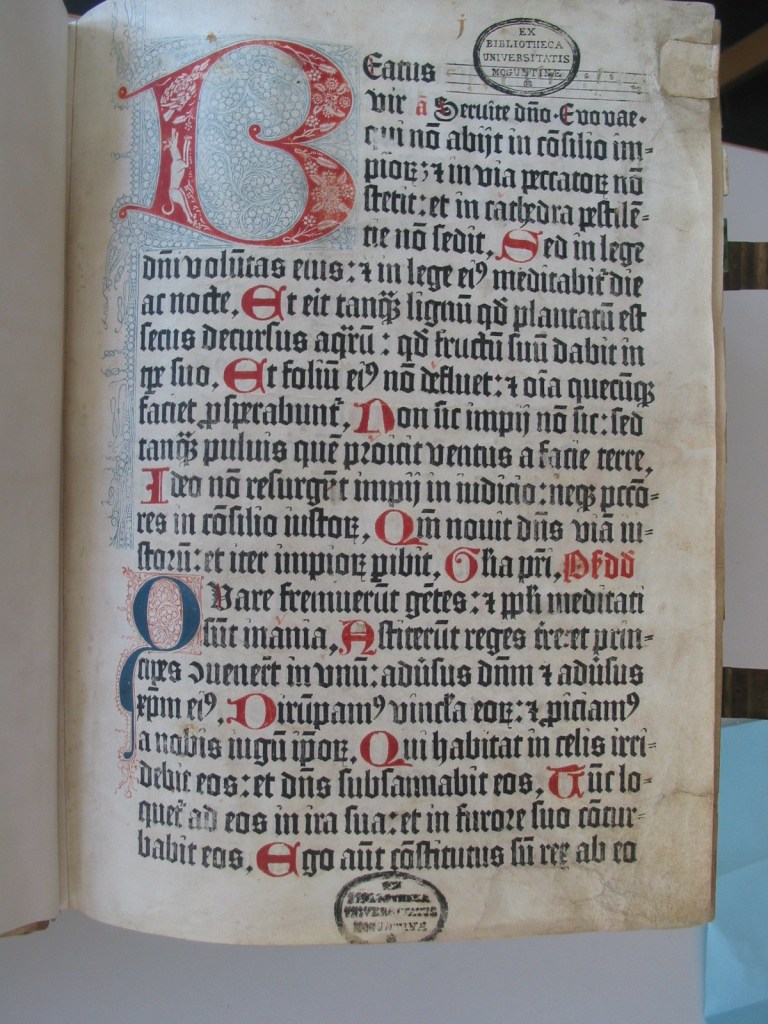 j
EX
BIBLIOTHECA
UNIVERSITATIS
MOGUNTINÆ
Beatus
vir ã Seruite dño. Evovae.
qui nõ abijt in cõsilio im=
pioꝝ: ⁊ in via peccatoꝝ nõ
stetit: et in cathedra pestilẽ=
tie nõ sedit, Sed in lege
dñi volũtas eius: ⁊ in lege eiꝰ meditabit᷑ die
ac nocte, Et erit tanqꝫ lignũ qđ plantatũ est
secus decursus aq̃rũ: qđ fructũ suũ dabit in
tꝑe suo, Et foliũ eiꝰ nõ defluet: ⁊ oĩa quecũqꝫ
faciet ꝓsperabunt᷑, Non sic impij nõ sic: sed
tanqꝫ puluis quẽ proicit ventus a facie terre,
Ideo nõ resurgẽt impij in iudicio: neqꝫ pccõ=
res in cõsilio iustoꝝ, Qm̃ nouit dñs viã iu=
storũ: et iter impioꝝ ꝑibit, Gl'ia pr̃i,
Quare fremuerũt gẽtes: ⁊ ppl'i meditati
sũt inania, Astiterũt reges tr̃e: et prin=
cipes ꝯuenerũt in vnũ: aduersus dñm ⁊ aduersus
xp̃m eiꝰ, Dirũpamꝰ vincl'a eoꝝ: ⁊ ꝓiciamꝰ
a nobis iugũ ip̃oꝝ, Qui habitat in celis irri=
debit eos: et dñs subsannabit eos, Tũc lo=
quet᷑ ad eos in ira sua: et in furore suo cõtur=
babit eos, Ego aũt cõstitutus sũ rex ab eo
EX
BIBLIOTHECA
UNIVERSITATIS
MOGUNTINÆ